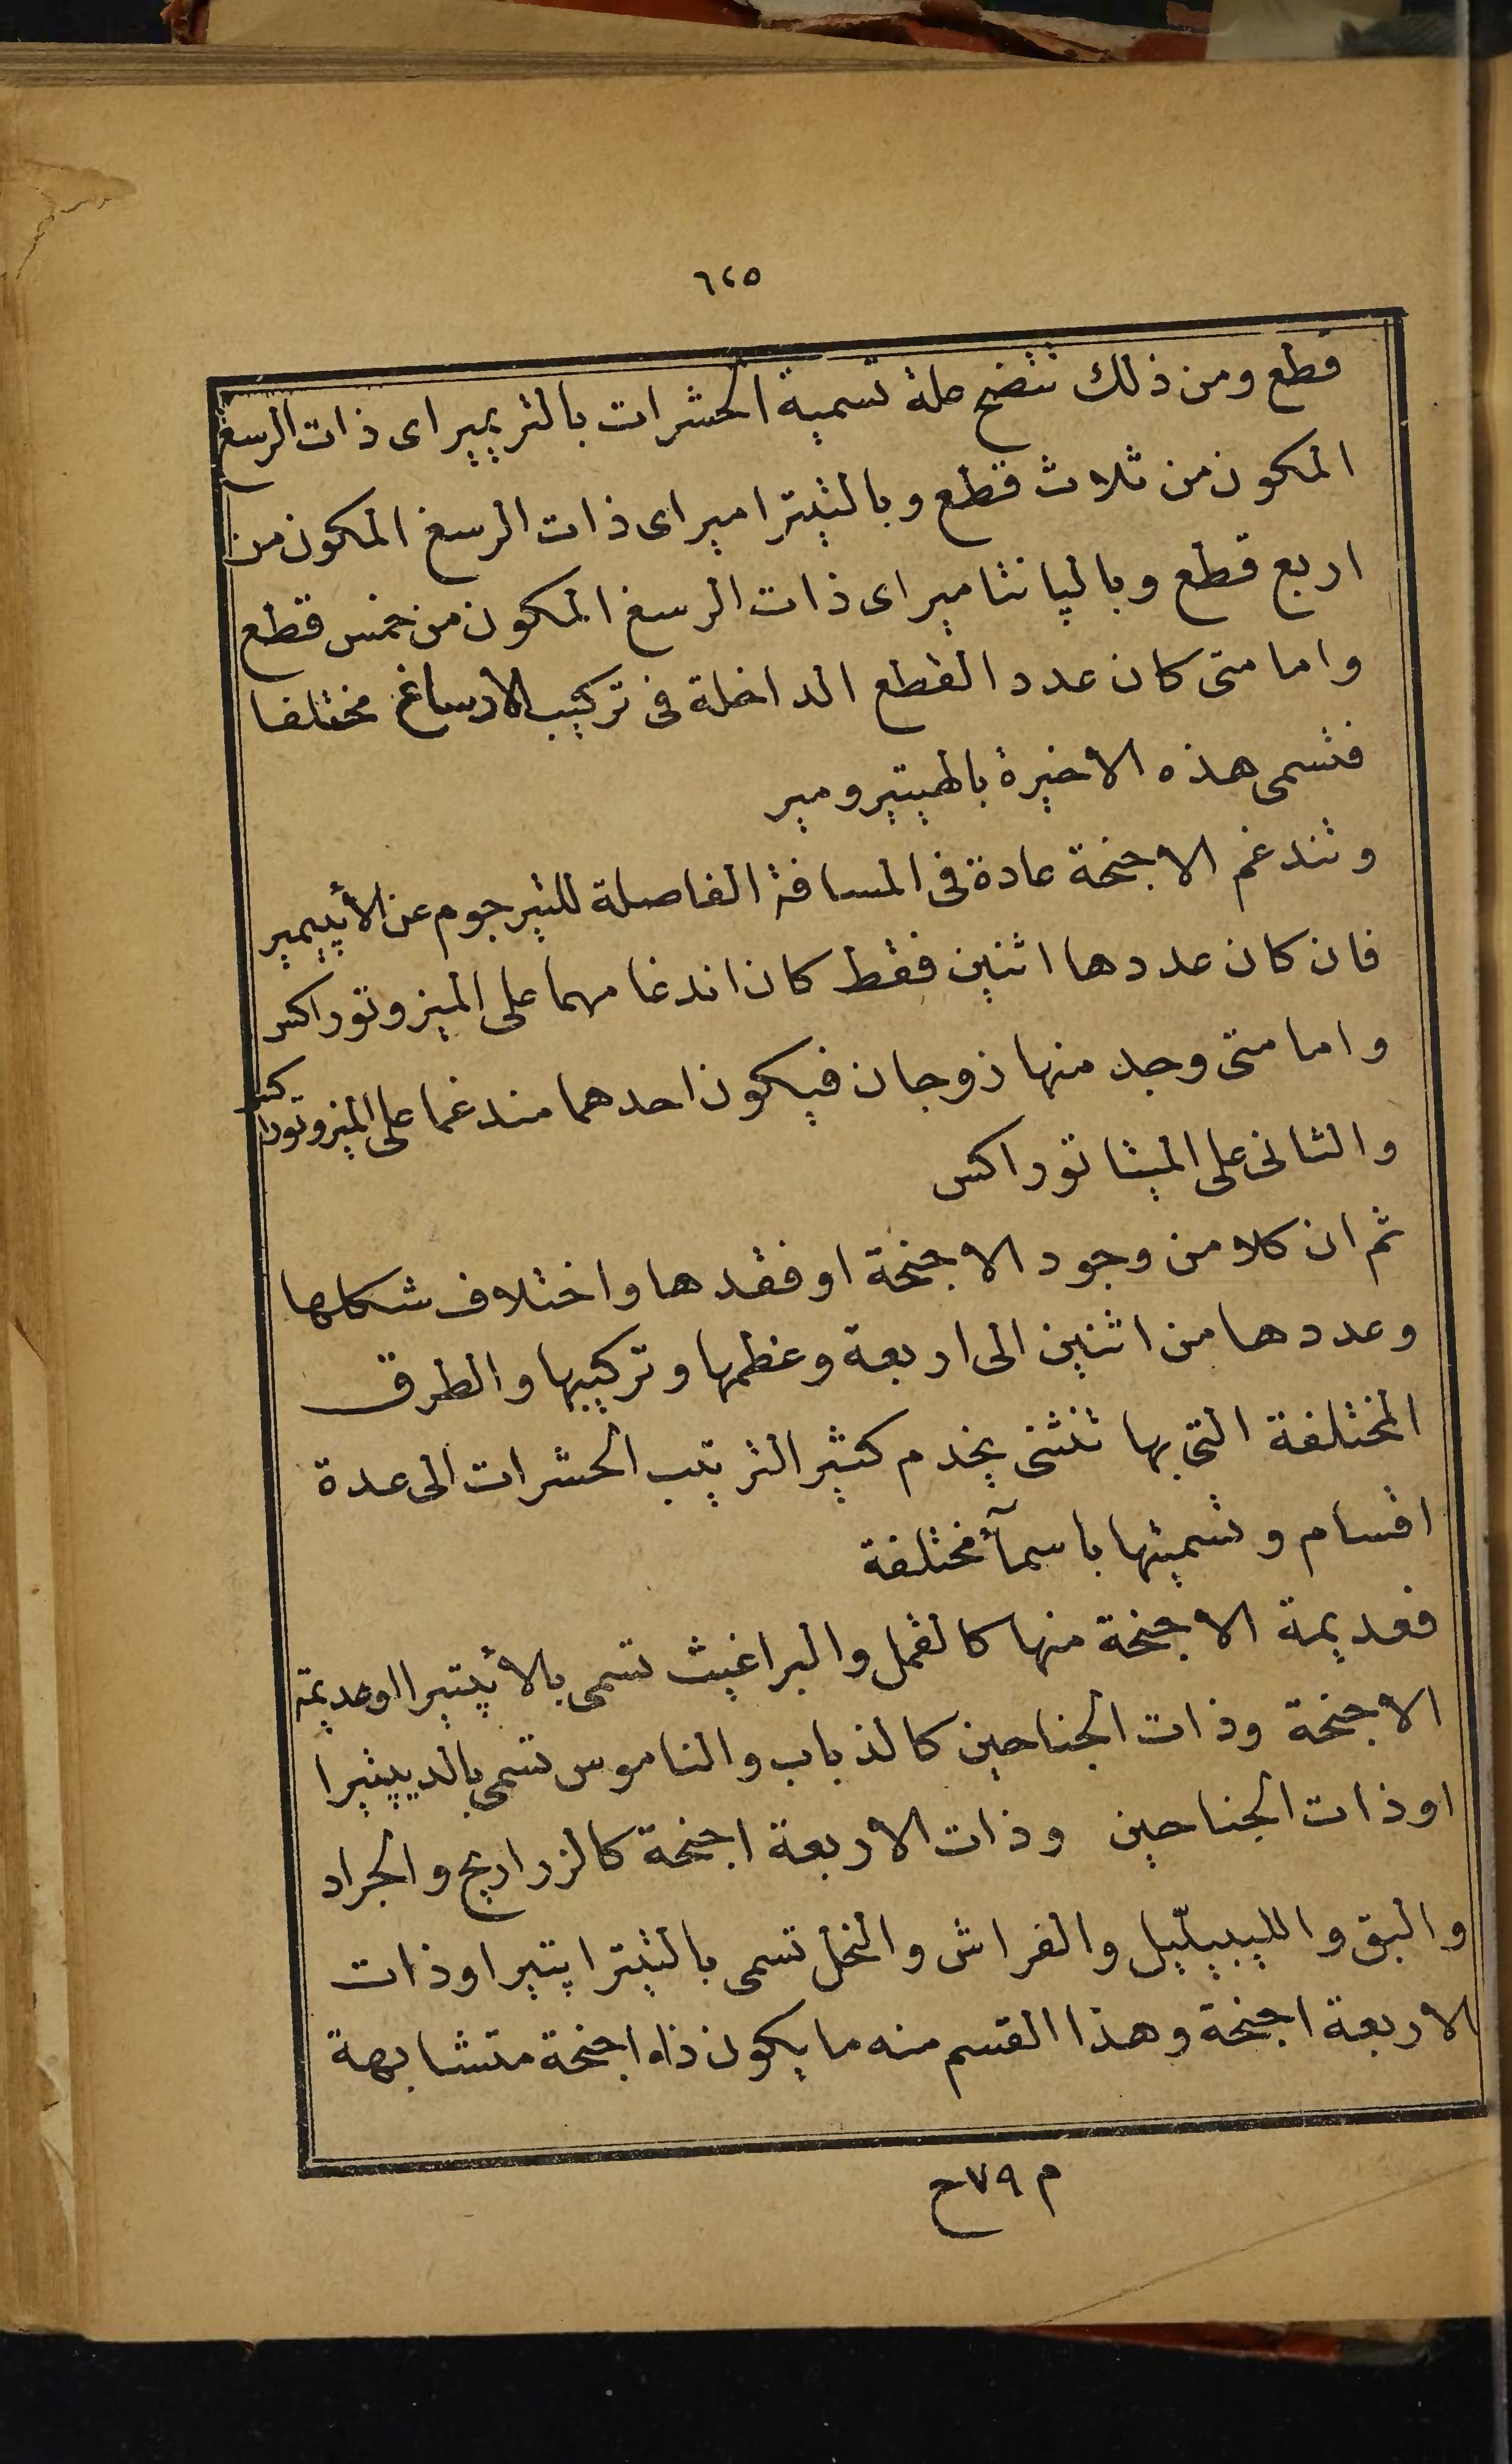 ٦٢٥
قطع ومن ذلك تتضح علة تسمية الحشرات بالتريمير اى ذات الرسغ
المكون من ثلاث قطع وبالتيترامير اى ذات الرسغ المكون من
اربع قطع وبالپانتامير اى ذات الرسغ المكون من خمس قطع
واما متى كان عدد القطع الداخلة فى تركيب الارساغ مختلفا
فتسمى هذه الاخيرة بالهيتيرومير
وتندغم الاجنحة عادة فى المسافة الفاصلة للتيرجوم عن الأپيمير
فان كان عددها اثنين فقط كان اندغامهما على الميزوتوراكس
واما متى وجد منها زوجان فيكون احدهما مندغما على الميزوتوراكس
والثانى على الميتاتوراكس
ثم ان كلا من وجود الاجنحة او فقدها واختلاف شكلها
وعددها من اثنين الى اربعة وعظمها وتركيبها والطرق
المختلفة التى بها تنثنى يخدم كثيرا لترتيب الحشرات الى عدة
اقسام وتسميتها باسمآء مختلفة
فعديمة الاجنحة منها كالقمل والبراغيث تسمى بالأپتيرا او عديمة
الاجنحة وذات الجناحين كالذباب والناموس تسمى بالديپتيرا
او ذات الجناحين وذات الاربعة اجنحة كالزراريح والجراد
والبق والليبيلّيل والفراش والنحل تسمى بالتيتراپتيرا وذات
الاربعة اجنحة وهذا القسم منه ما يكون ذا اجنحة متشابهة
م ٧٩ ح